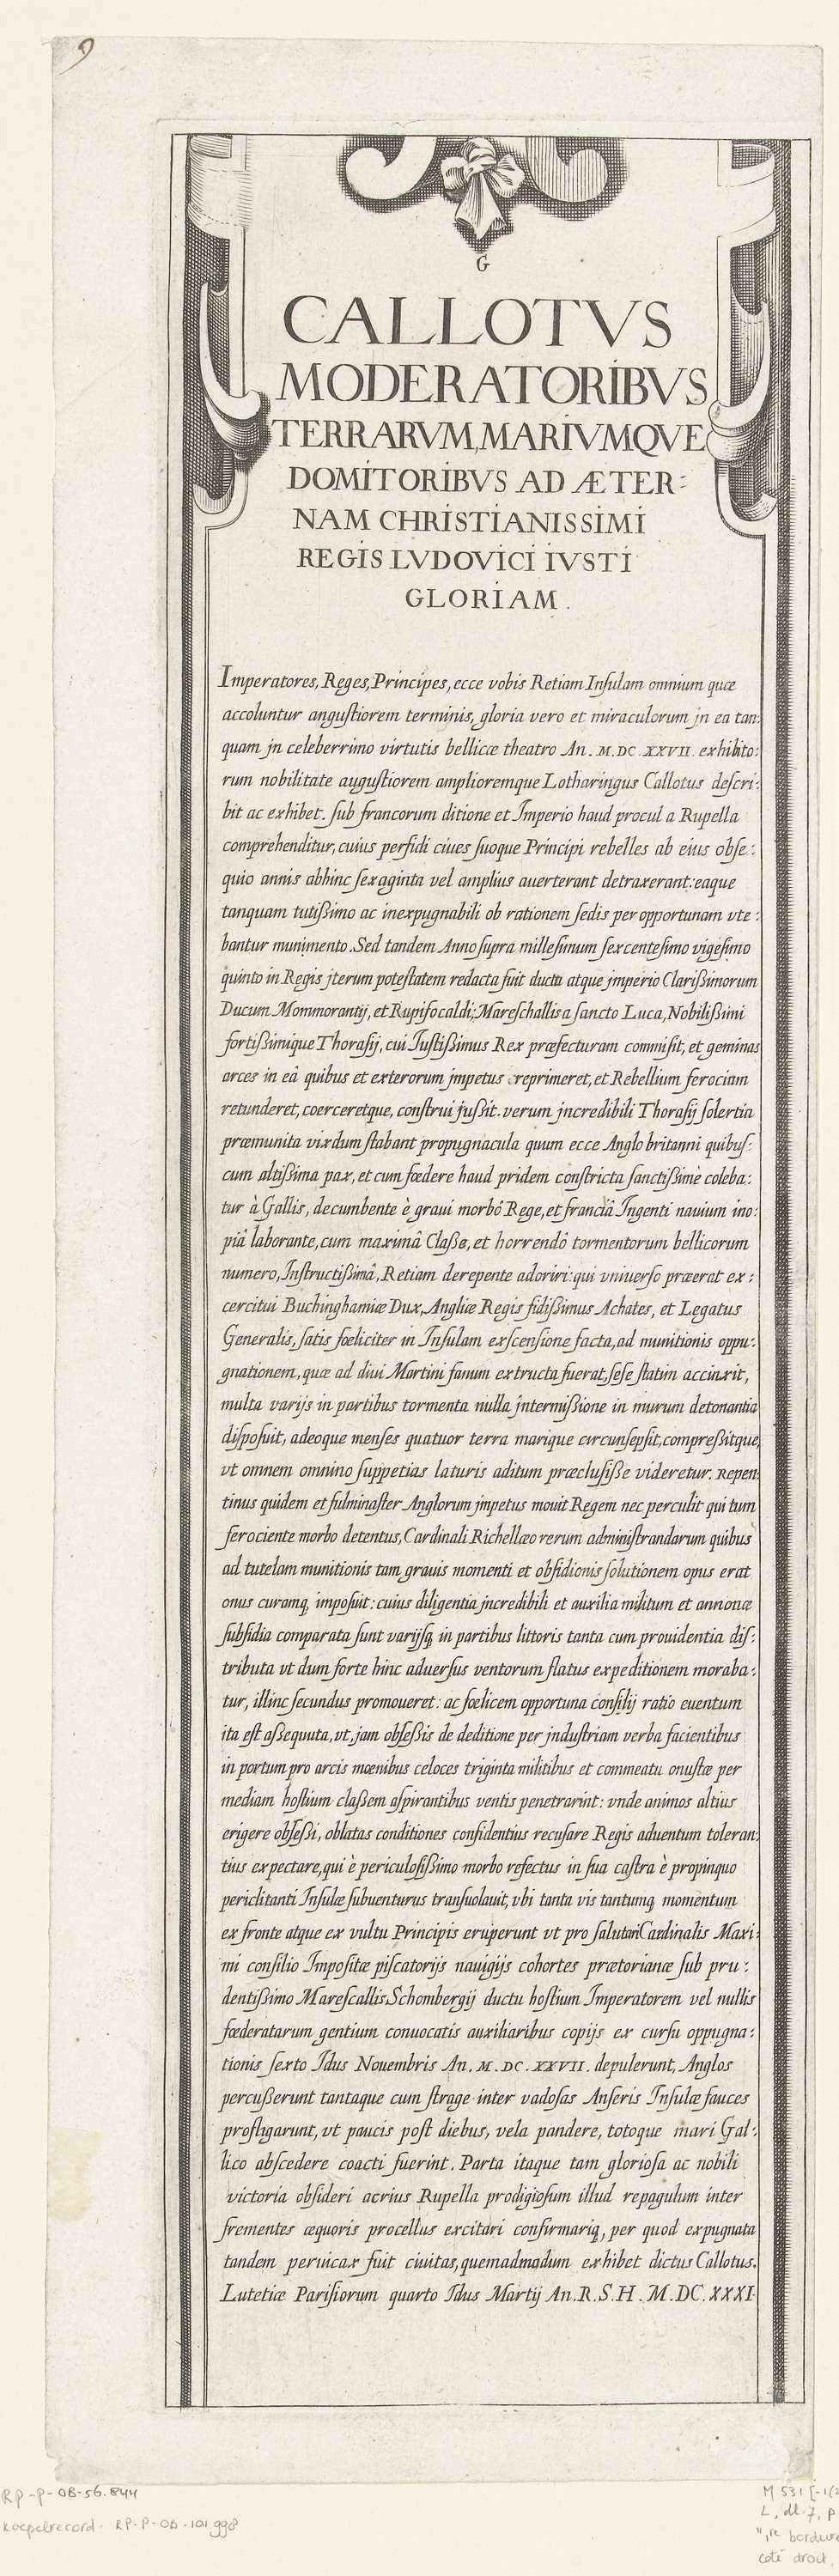 9
G
CALLOTVS
MODERATORIBVS
TERRARVM, MARIVMQVE
DOMITORIBVS AD ÆTER:
NAM CHRISTIANISSIMI
REGIS LVDOVICI IVSTI
GLORIAM.
Imperatores, Reges, Principes, ecce vobis Retiam Insulam omnium quæ
accoluntur angustiorem terminis, gloria vero et miraculorum jn ea tan:
quam jn celeberrimo virtutis bellicæ theatro An. M.DC.XXVII. exhibito:
rum nobilitate augustiorem amplioremque Lotharingus Callotus descri:
bit ac exhibet. sub francorum ditione et Imperio haud procul a Rupella
comprehenditur, cuius perfidi ciues suoque Principi rebelles ab eius obse:
quio annis abhinc sexaginta vel amplius auerterant detraxerant: eaque
tanquam tutißimo ac inexpugnabili ob rationem sedis peropportunam vte:
bantur munimento. Sed tandem Anno supra millesimum sexcentesimo vigesimo
quinto in Regis jterum potestatem redacta fuit ductu atque jmperio Clarißimorum
Ducum Mommorantij, et Rupifocaldi; Mareschallis a sancto Luca, Nobilißimi
fortißimique Thorasij, cui Iustißimus Rex præfecturam commisit, et geminas
arces in eâ quibus et exterorum jmpetus reprimeret, et Rebellium ferociam
retunderet, coerceretque, construi jußit. verum jncredibili Thorasij solertia
præmunita vixdum stabant propugnacula quum ecce Anglo britanni quibus:
cum altißima pax, et cum fœdere haud pridem constricta sanctißimè coleba:
tur à Gallis, decumbente è graui morbô Rege, et franciâ Ingenti nauium ino:
piâ laborante, cum maximâ Claße, et horrendô tormentorum bellicorum
numero, Instructißimâ, Retiam derepente adoriri: qui vniuerso præerat ex:
cercitui Buchinghamiæ Dux, Angliæ Regis fidißimus Achates, et Legatus
Generalis, satis fœliciter in Insulam exscensione facta, ad munitionis oppu:
gnationem, quæ ad diui Martini fanum extructa fuerat, sese statim accinxit,
multa varijs in partibus tormenta nulla jntermißione in murum detonantia
disposuit, adeoque menses quatuor terra marique circunsepsit, compreßitque,
vt omnem omnino suppetias laturis aditum præclusiße videretur. Repen:
tinus quidem et fulminaster Anglorum jmpetus mouit Regem nec perculit qui tum
ferociente morbo detentus, Cardinali Richellæo rerum administrandarum quibus
ad tutelam munitionis tam grauis momenti et obsidionis solutionem opus erat
onus curamq, imposuit: cuius diligentia jncredibili et auxilia militum et annonæ
subsidia comparata sunt varijsq, in partibus littoris tanta cum prouidentia dis:
tributa vt dum forte hinc aduersus ventorum flatus expeditionem moraba:
tur, illinc secundus promoueret: ac fœlicem opportuna consilij ratio euentum
ita est aßequuta, vt, jam obseßis de deditione per jndustriam verba facientibus
in portum pro arcis mœnibus celoces triginta militibus et commeatu onustæ per
mediam hostium claßem aspirantibus ventis penetrarint: vnde animos altius
erigere obseßi, oblatas conditiones confidentius recusare Regis aduentum toleran:
tius expectare, qui è periculosißimo morbo refectus in sua castra è propinquo
periclitanti Insulæ subuenturus transuolauit, vbi tanta vis tantumq, momentum
ex fronte atque ex vultu Principis eruperunt vt pro salutari Cardinalis Maxi:
mi consilio Impositæ piscatorijs nauigijs cohortes prætorianæ sub pru:
dentißimo Marescallis Schombergij ductu hostium Imperatorem vel nullis
fœderatarum gentium conuocatis auxiliaribus copijs ex cursu oppugna:
tionis sexto Idus Nouembris An. M.DC.XXVII. depulerunt, Anglos
percußerunt tantaque cum strage inter vadosas Anseris Insulæ fauces
profligarunt, vt paucis post diebus, vela pandere, totoque mari Gal:
lico abscedere coacti fuerint. Parta itaque tam gloriosa ac nobili
victoria obsideri acrius Rupella prodigiosum illud repagulum inter
frementes æquoris procellus excitari confirmariq, per quod expugnata
tandem peruicax fuit ciuitas, quemadmodum exhibet dictus Callotus.
Lutetiæ Parisiorum quarto Idus Martij An.R.S.H. M.DC.XXXI.
RP-P-OB-56.844
Koepelrecord. RP-P-OB-101.998
M 531 [-1(2
L, dl. 7, p
"1re bordure
coté droit.